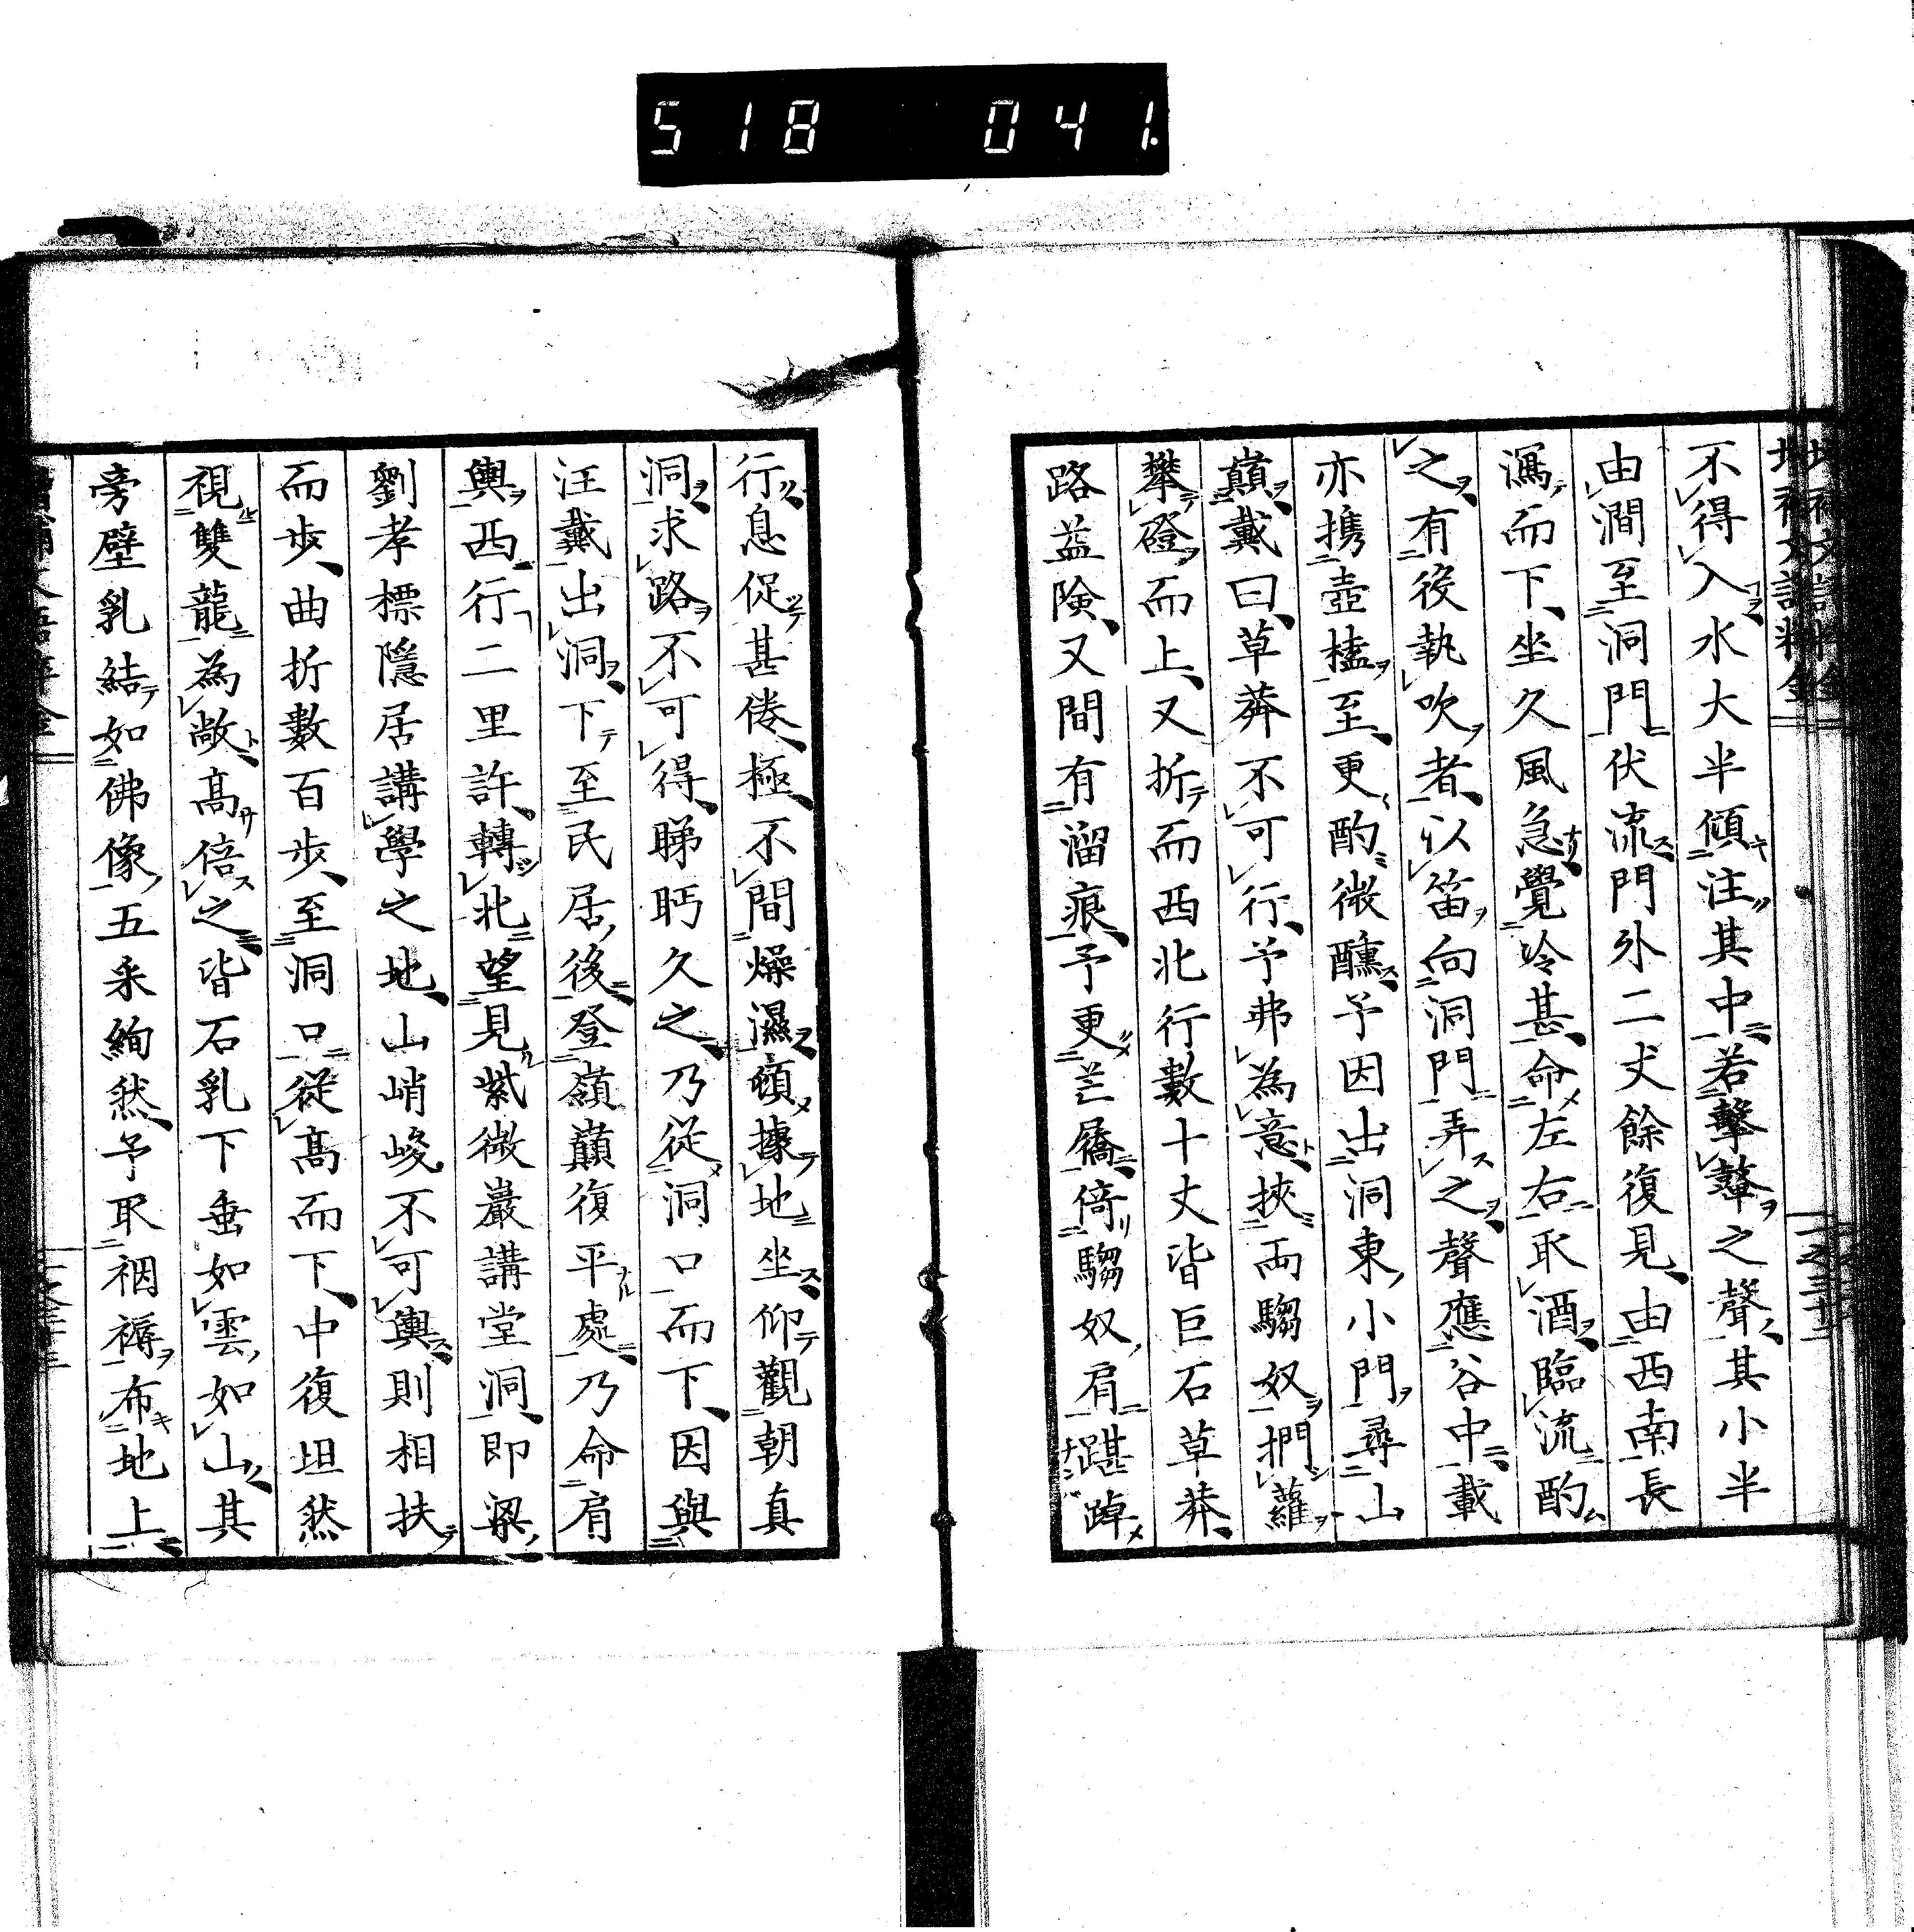 518 041
不得入水大半傾注其中若擊鼙之聲其小半
由澗至洞門伏流門外二丈餘復見由西南長
瀉而下坐久風急覺冷甚命左右取酒臨流酌
之有後執吹者以笛向洞門弄之聲應谷中載
亦携壺榼至更酌微醺予因出洞東小門尋山
巔戴曰草莽不可行予弗為意挾両騶奴捫蘿
攀磴而上又折而西北行數十丈皆巨石草莽
路益険又間有溜痕予更芒屩倚騶奴肩踸踔
行息促甚倦極不間燥濕頓據地坐仰觀朝真
洞求路不可得睇眄久之乃從洞口而下因與
汪戴出洞下至民居後登嶺巔復平處乃命肩
輿西行二里許轉北望見紫微巖講堂洞即梁
劉孝標隱居講學之地山峭峻不可輿則相扶
而歩曲折數百歩至洞口從髙而下中復坦然
視雙龍為敞髙倍之皆石乳下垂如雲如山其
旁壁乳結如佛像五采絢然予取裀褥布地上